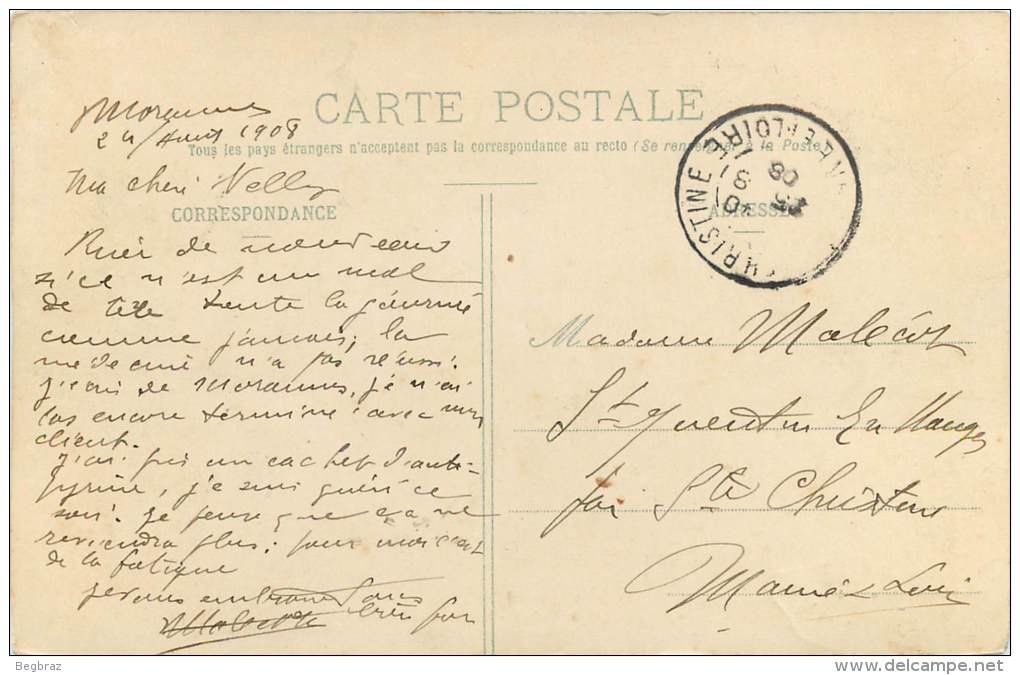 Morannes
24 Aout 1908
CARTE POSTALE
Tous les pays étrangers n'acceptent pas la correspondance au recto (Se renseigner à la Poste)
Ma cheri Nelly
CORRESPONDANCE
Rien de nouveau
si ce n'est un mal
de tete toute la journée
comme jamais, la
médecine n'a pas réussi.
J'ecris de Morannes, je n'ai
pas encore terminé avec mon
client.
J'ai pris un cachet d'anti-
pyrine, je suis guéri ce
soir. Je pense que ca ne
reviendra plus; pour moi c'est
de la fatigue
Je vous embrasse tous
bien fort
Malécot
ADRESSE
CHRISTINE
25
08
ET-LOIRE
Madame Malécot
St Quentin En Mauges
par Ste Christine
Maine & Loire
Begbraz
http://www.delcampe.net